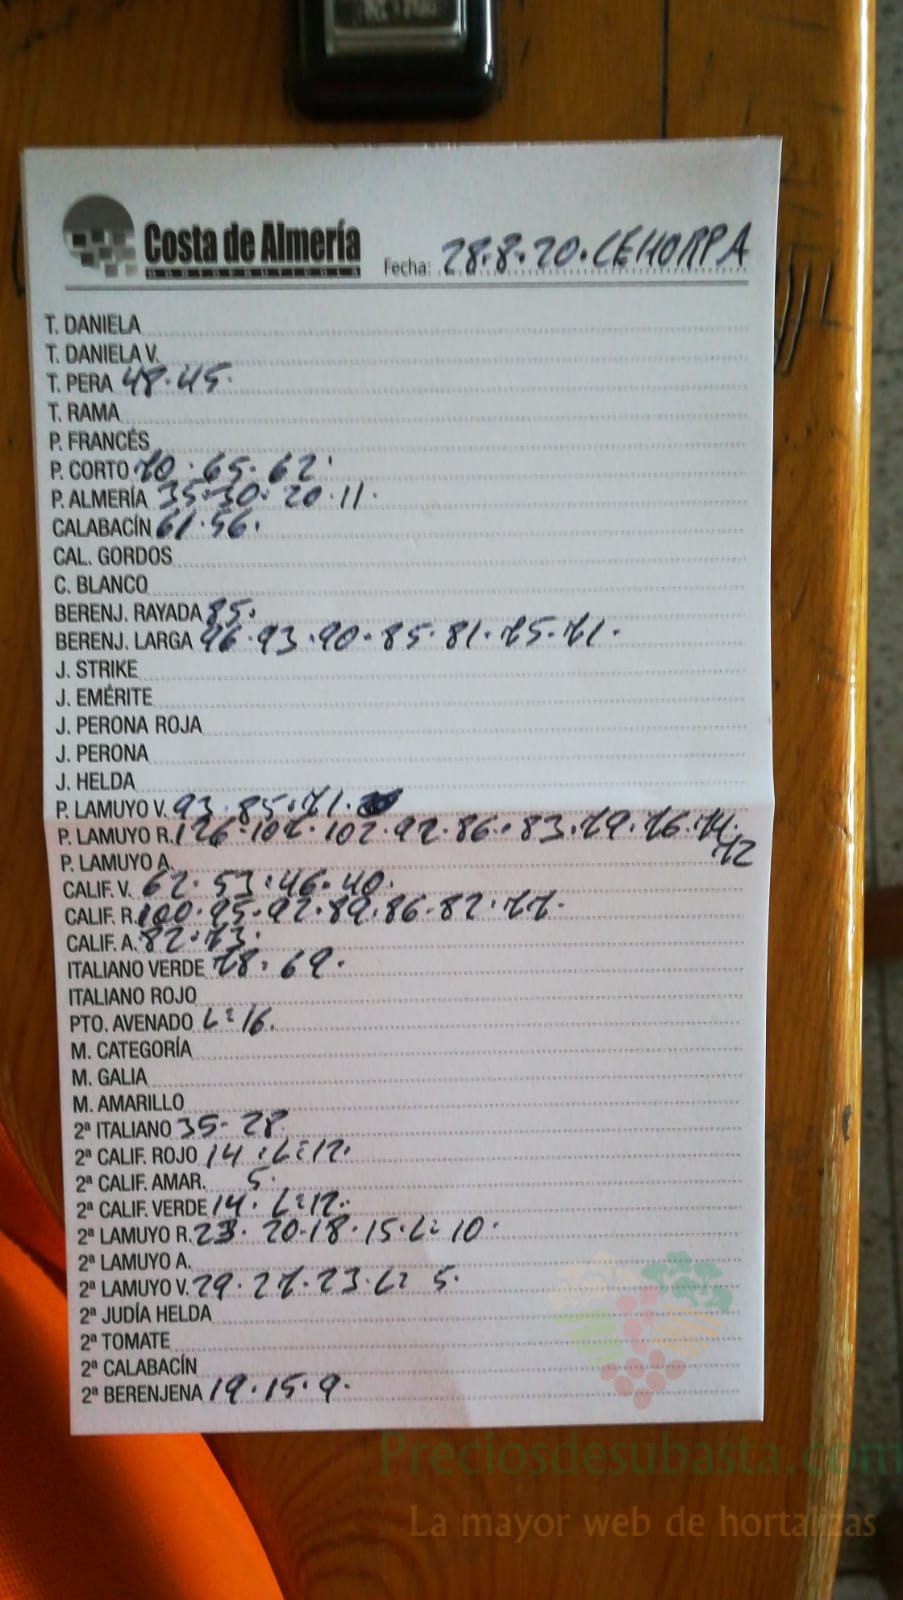 Costa de Almería
HORTOFRUTÍCOLA
Fecha: 28.8.20. CEHORPA
T. DANIELA
T. DANIELA V.
T. PERA 48. 45.
T. RAMA
P. FRANCÉS
P. CORTO 70. 65. 62.
P. ALMERÍA 35. 30. 20. 11.
CALABACÍN 61. 56.
CAL. GORDOS
C. BLANCO
BERENJ. RAYADA 85.
BERENJ. LARGA 96. 93. 90. 85. 81. 75. 71.
J. STRIKE
J. EMÉRITE
J. PERONA ROJA
J. PERONA
J. HELDA
P. LAMUYO V. 93. 85. 71.
P. LAMUYO R. 126. 107. 102. 92. 86. 83. 79. 76. 74.
72
P. LAMUYO A.
CALIF. V. 62. 53. 46. 40.
CALIF. R. 100. 95. 92. 89. 86. 82. 77.
CALIF. A. 82. 73.
ITALIANO VERDE 78. 69.
ITALIANO ROJO
PTO. AVENADO L= 16.
M. CATEGORÍA
M. GALIA
M. AMARILLO
2ª ITALIANO 35. 28.
2ª CALIF. ROJO 14. L= 12.
2ª CALIF. AMAR. 5.
2ª CALIF. VERDE 14. L= 12.
2ª LAMUYO R. 23. 20. 18. 15. L= 10.
2ª LAMUYO A.
2ª LAMUYO V. 29. 27. 23. L= 5.
2ª JUDÍA HELDA
2ª TOMATE
2ª CALABACÍN
2ª BERENJENA 19. 15. 9.
Preciosdesubasta.com
La mayor web de hortalizas